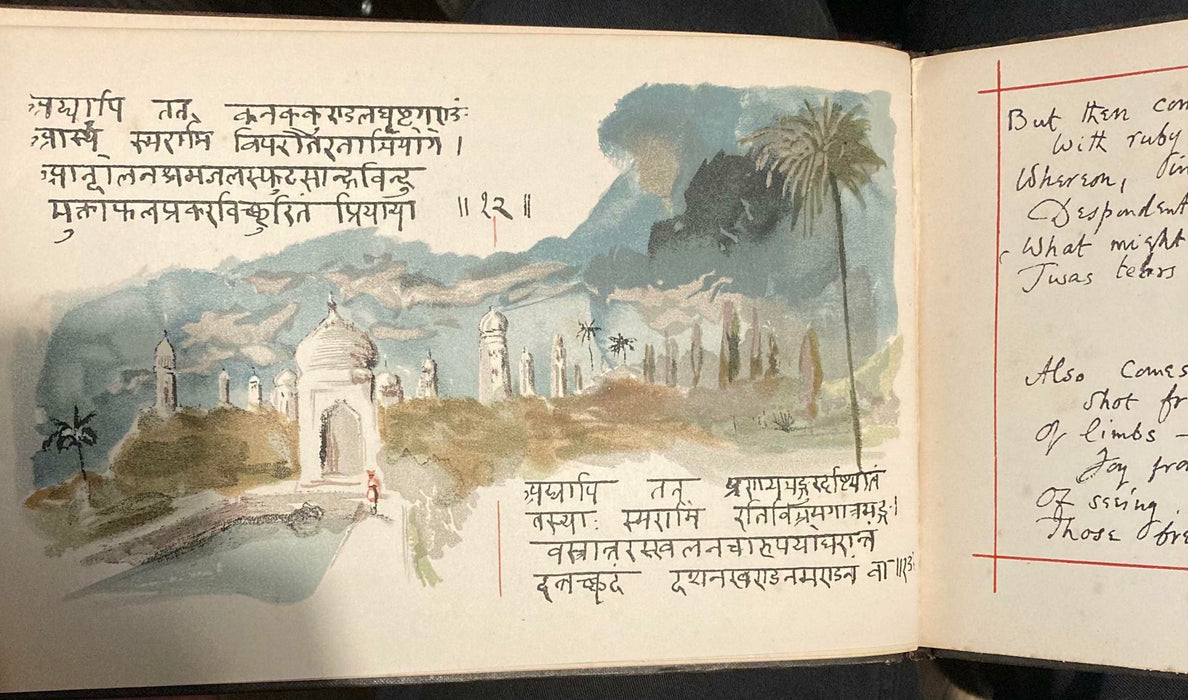 अद्यापि तत् कनककुण्डलघृष्टगण्डं
आस्यं स्मरामि विपरीतरताभियोगे ।
आन्दोलनश्रमजलस्फुटसान्द्रविन्दु
मुक्ताफलप्रकरविच्छुरितं प्रियाया ॥१२॥
अद्यापि तत् प्रणयभङ्गरदृष्टिपातं
तस्याः स्मरामि रतिविभ्रमगात्रभङ्ग ।
वस्त्रान्तरस्खलनचारुपयोधरान्त
दन्तच्छद दशनखण्डनमण्डन वा ॥१३
But then
With ruby
Whereon,
Despondent
What might
Twas tears
Also comes
Shot
Of limbs –
Joy
Of seeing
Those